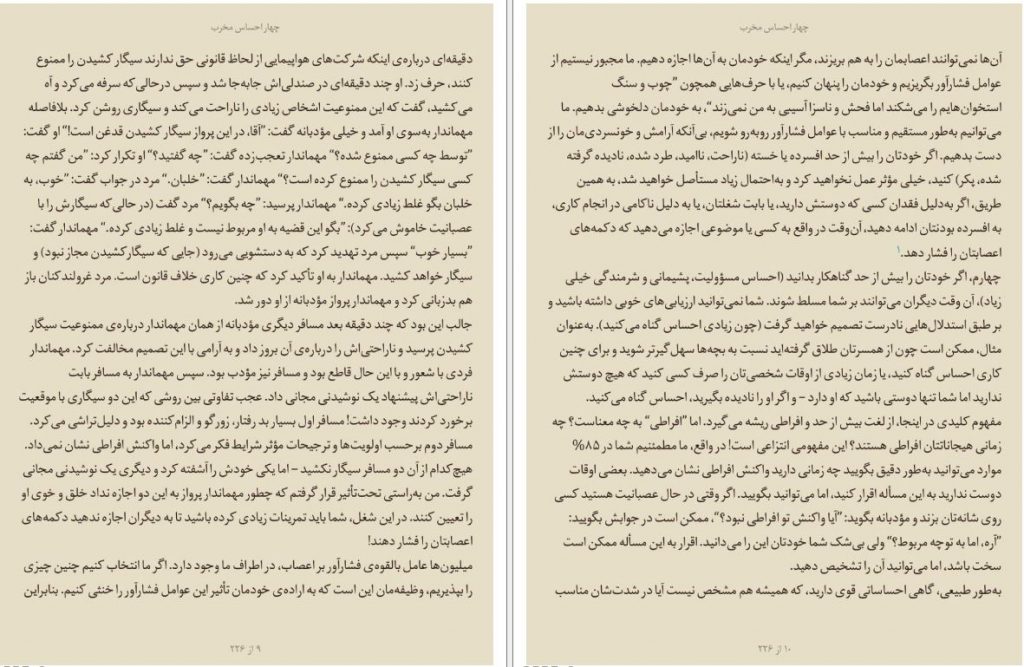 چهار احساس مخرب
دقیقه‌ای درباره‌ی اینکه شرکت‌های هواپیمایی از لحاظ قانونی حق ندارند سیگار کشیدن را ممنوع
کنند، حرف زد. او چند دقیقه‌ای در صندلی‌اش جابه‌جا شد و سپس درحالی‌که سرفه می‌کرد و آه
می‌کشید، گفت که این ممنوعیت اشخاص زیادی را ناراحت می‌کند و سیگاری روشن کرد. بلافاصله
مهماندار به‌سوی او آمد و خیلی مؤدبانه گفت: ”آقا، در این پرواز سیگار کشیدن قدغن است!“ او گفت:
”توسط چه کسی ممنوع شده؟“ مهماندار تعجب‌زده گفت: ”چه گفتید؟“ او تکرار کرد: ”من گفتم چه
کسی سیگار کشیدن را ممنوع کرده است؟“ مهماندار گفت: ”خلبان.“ مرد در جواب گفت: ”خوب، به
خلبان بگو غلط زیادی کرده.“ مهماندار پرسید: ”چه بگویم؟“ مرد گفت (در حالی که سیگارش را با
عصبانیت خاموش می‌کرد): ”بگو این قضیه به او مربوط نیست و غلط زیادی کرده.“ مهماندار گفت:
”بسیار خوب“ سپس مرد تهدید کرد که به دستشویی می‌رود (جایی که سیگار کشیدن مجاز نبود) و
سیگار خواهد کشید. مهماندار به او تأکید کرد که چنین کاری خلاف قانون است. مرد غرولندکنان باز
هم بدزبانی کرد و مهماندار پرواز مؤدبانه از او دور شد.
جالب این بود که چند دقیقه بعد مسافر دیگری مؤدبانه از همان مهماندار درباره‌ی ممنوعیت سیگار
کشیدن پرسید و ناراحتی‌اش را درباره‌ی آن بروز داد و به آرامی با این تصمیم مخالفت کرد. مهماندار
فردی با شعور و با این حال قاطع بود و مسافر نیز مؤدب بود. سپس مهماندار به مسافر بابت
ناراحتی‌اش پیشنهاد یک نوشیدنی مجانی داد. عجب تفاوتی بین روشی که این دو سیگاری با موقعیت
برخورد کردند وجود داشت! مسافر اول بسیار بد رفتار، زورگو و الزام‌کننده بود و دلیل‌تراشی می‌کرد.
مسافر دوم برحسب اولویت‌ها و ترجیحات مؤثر شرایط فکر می‌کرد، اما واکنش افراطی نشان نمی‌داد.
هیچ‌کدام از آن دو مسافر سیگار نکشید – اما یکی خودش را آشفته کرد و دیگری یک نوشیدنی مجانی
گرفت. من به‌راستی تحت‌تأثیر قرار گرفتم که چطور مهماندار پرواز به این دو اجازه نداد خلق و خوی او
را تعیین کنند. در این شغل، شما باید تمرینات زیادی کرده باشید تا به دیگران اجازه ندهید دکمه‌های
اعصابتان را فشار دهند!
میلیون‌ها عامل بالقوه‌ی فشارآور بر اعصاب، در اطراف ما وجود دارد. اگر ما انتخاب کنیم چنین چیزی
را بپذیریم، وظیفه‌مان این است که به اراده‌ی خودمان تأثیر این عوامل فشارآور را خنثی کنیم. بنابراین
۹ از ۲۲۶
چهار احساس مخرب
آن‌ها نمی‌توانند اعصابمان را به هم بریزند، مگر اینکه خودمان به آن‌ها اجازه دهیم. ما مجبور نیستیم از
عوامل فشارآور بگریزیم و خودمان را پنهان کنیم، یا با حرف‌هایی همچون ”چوب و سنگ
استخوان‌هایم را می‌شکند اما فحش و ناسزا آسیبی به من نمی‌زند“، به خودمان دلخوشی بدهیم. ما
می‌توانیم به‌طور مستقیم و مناسب با عوامل فشارآور روبه‌رو شویم، بی‌آنکه آرامش و خونسردی‌مان را از
دست بدهیم. اگر خودتان را بیش از حد افسرده یا خسته (ناراحت، ناامید، طرد شده، نادیده گرفته
شده، پکر) کنید، خیلی مؤثر عمل نخواهید کرد و به‌احتمال زیاد مستأصل خواهید شد، به همین
طریق، اگر به‌دلیل فقدان کسی که دوستش دارید، یا بابت شغلتان، یا به دلیل ناکامی در انجام کاری،
به افسرده بودنتان ادامه دهید، آن‌وقت در واقع به کسی یا موضوعی اجازه می‌دهید که دکمه‌های
اعصابتان را فشار دهد.۱
چهارم، اگر خودتان را بیش از حد گناهکار بدانید (احساس مسؤولیت، پشیمانی و شرمندگی خیلی
زیاد)، آن وقت دیگران می‌توانند بر شما مسلط شوند. شما نمی‌توانید ارزیابی‌های خوبی داشته باشید و
بر طبق استدلال‌هایی نادرست تصمیم خواهید گرفت (چون زیادی احساس گناه می‌کنید). به‌عنوان
مثال، ممکن است چون از همسرتان طلاق گرفته‌اید نسبت به بچه‌ها سهل‌گیرتر شوید و برای چنین
کاری احساس گناه کنید، یا زمان زیادی از اوقات شخصی‌تان را صرف کسی کنید که هیچ دوستش
ندارید اما شما تنها دوستی باشید که او دارد – و اگر او را نادیده بگیرید، احساس گناه می‌کنید.
مفهوم کلیدی در اینجا، از لغت بیش از حد و افراطی ریشه می‌گیرد. اما ”افراطی“ به چه معناست؟ چه
زمانی هیجاناتتان افراطی هستند؟ این مفهومی انتزاعی است! در واقع، ما مطمئنیم شما در ۸۵%
موارد می‌توانید به‌طور دقیق بگویید چه زمانی دارید واکنش افراطی نشان می‌دهید. بعضی اوقات
دوست ندارید به این مسأله اقرار کنید، اما می‌توانید بگویید. اگر وقتی در حال عصبانیت هستید کسی
روی شانه‌تان بزند و مؤدبانه بگوید: ”آیا واکنش تو افراطی نبود؟“، ممکن است در جوابش بگویید:
”آره، اما به تو چه مربوط؟“ ولی بی‌شک شما خودتان این را می‌دانید. اقرار به این مسأله ممکن است
سخت باشد، اما می‌توانید آن را تشخیص دهید.
به‌طور طبیعی، گاهی احساساتی قوی دارید، که همیشه هم مشخص نیست آیا در شدت‌شان مناسب
۱۰ از ۲۲۶